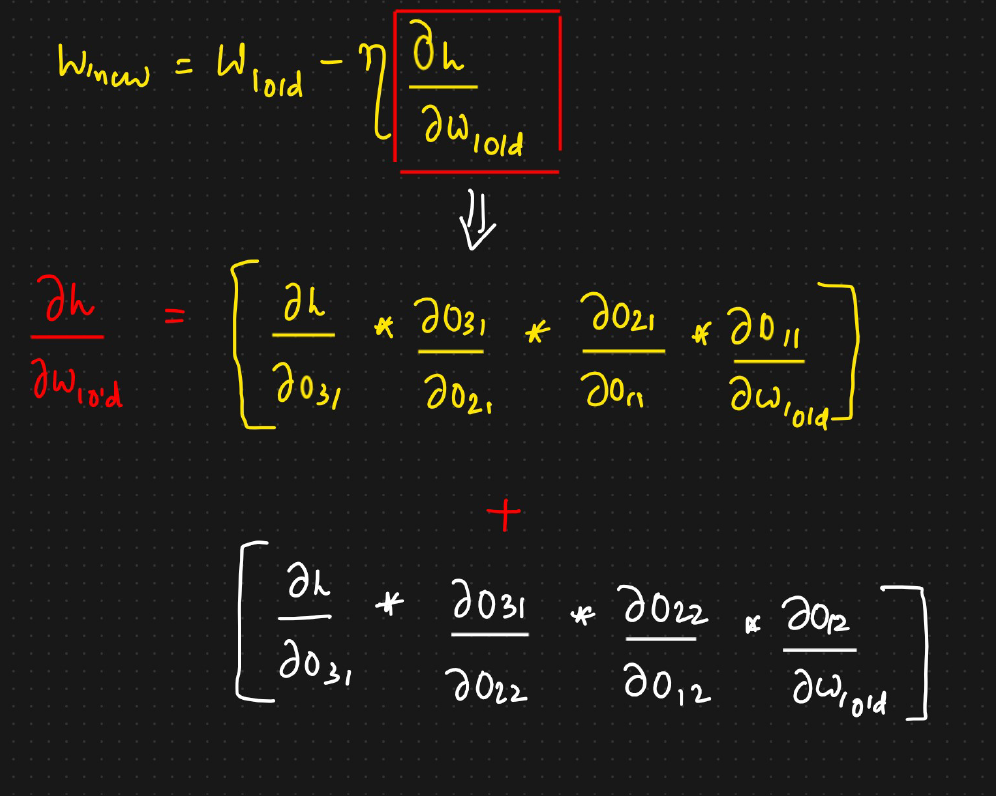 w₁new = w₁old - η ∂h/∂w₁old
⇓
∂h/∂w₁old = [ ∂h/∂O₃₁ * ∂O₃₁/∂O₂₁ * ∂O₂₁/∂O₁₁ * ∂O₁₁/∂w₁old ]
+
[ ∂h/∂O₃₁ * ∂O₃₁/∂O₂₂ * ∂O₂₂/∂O₁₂ * ∂O₁₂/∂w₁old ]